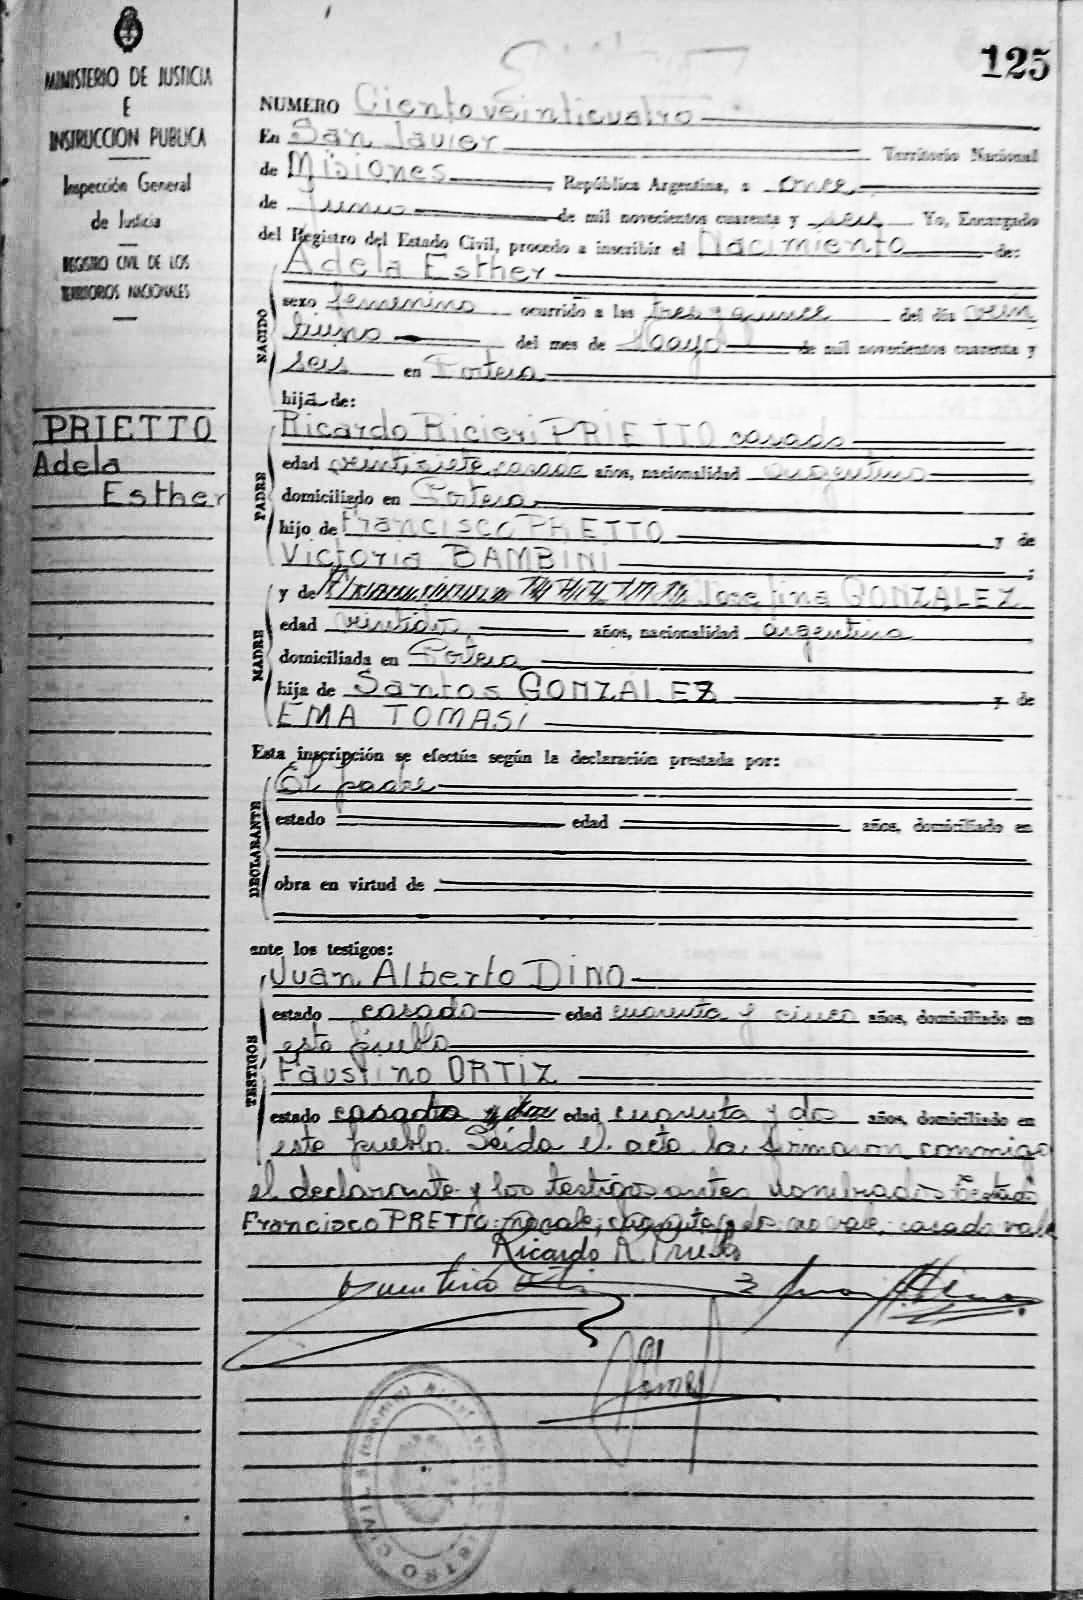 MINISTERIO DE JUSTICIA
E
INSTRUCCION PUBLICA
Inspección General
de Justicia
REGISTRO CIVIL DE LOS
TERRITORIOS NACIONALES
PRIETTO
Adela
Esther
125
NUMERO Ciento veinticuatro
En San Javier Territorio Nacional
de Misiones, República Argentina, a once
de Junio de mil novecientos cuarenta y seis Yo, Encargado
del Registro del Estado Civil, procedo a inscribir el Nacimiento de:
NACIDO
Adela Esther
sexo femenino ocurrido a las tres y quince del día vein
tiuno del mes de Mayo de mil novecientos cuarenta y
seis en Portera
hija de:
PADRE
Ricardo Ricieri PRIETTO casado
edad veintisiete casado años, nacionalidad argentino
domiciliado en Portera
hijo de Francisco PRETTO y de
Victoria BAMBINI ;
MADRE
y de Josefina GONZALEZ
edad veintidos años, nacionalidad argentina
domiciliada en Portera
hija de Santos GONZALEZ y de
EMA TOMASI
Esta inscripción se efectúa según la declaración prestada por:
DECLARANTE
El padre
estado edad años, domiciliado en
obra en virtud de
ante los testigos:
TESTIGOS
Juan Alberto DINO
estado casado edad cuarenta y cinco años, domiciliado en
este pueblo
Faustino ORTIZ
estado casado edad cuarenta y dos años, domiciliado en
este pueblo. Leida el acta la firmaron conmigo
el declarante y los testigos antes nombrados Testado
Francisco PRETTO: no vale; no vale. casado vale
Ricardo R. Prietto
Gomez
REGISTRO CIVIL